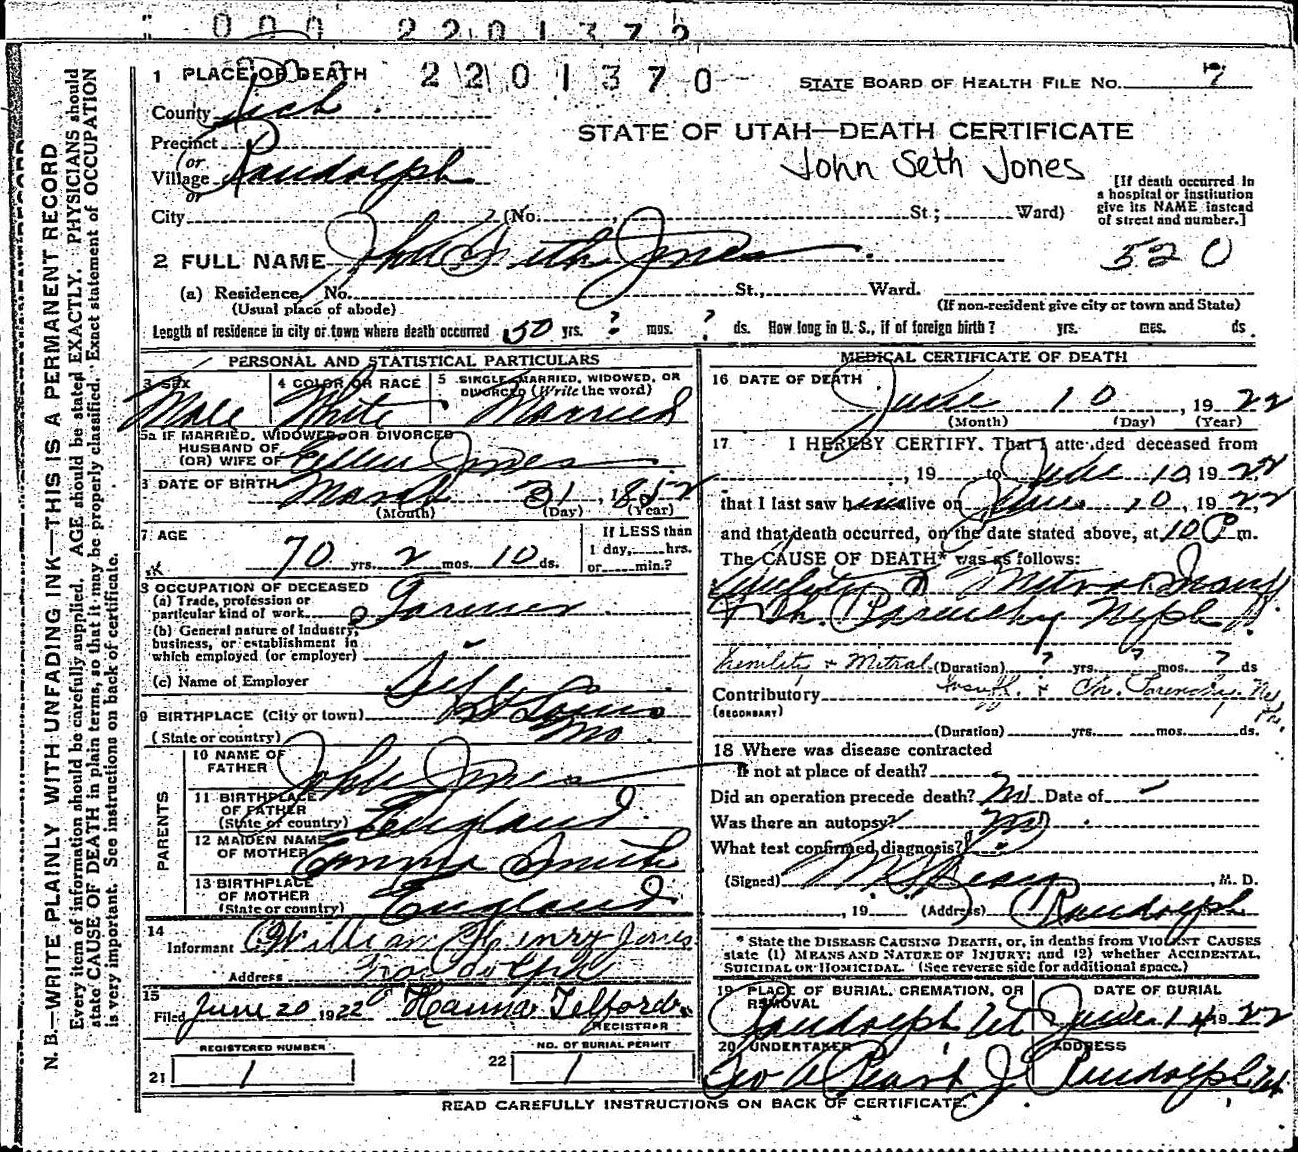 000 2201372
000 2201370
1 PLACE OF DEATH
STATE BOARD OF HEALTH FILE NO. 7
County Rich
STATE OF UTAH—DEATH CERTIFICATE
John Seth Jones
Precinct
(or
Village Randolph
or
City (No. St.; Ward)
[If death occurred in
a hospital or institution
give its NAME instead
of street and number.]
520
2 FULL NAME John Seth Jones
(a) Residence, No. St., Ward.
(Usual place of abode) (If non-resident give city or town and State)
Length of residence in city or town where death occurred 50 yrs. ? mos. ? ds. How long in U. S., if of foreign birth? yrs. mos. ds.
PERSONAL AND STATISTICAL PARTICULARS
3 SEX Male
4 COLOR OR RACE White
5 SINGLE, MARRIED, WIDOWED, OR
DIVORCED (Write the word) Married
5a IF MARRIED, WIDOWED, OR DIVORCED
HUSBAND OF
(OR) WIFE OF Ellen Jones
6 DATE OF BIRTH March 31, 1852
(Month) (Day) (Year)
7 AGE 70 yrs. 2 mos. 10 ds.
If LESS than
1 day, hrs.
or min.?
8 OCCUPATION OF DECEASED
(a) Trade, profession or
particular kind of work Farmer
(b) General nature of industry,
business, or establishment in
which employed (or employer)
(c) Name of Employer Self
9 BIRTHPLACE (City or town) St Louis
(State or country) Mo
PARENTS
10 NAME OF
FATHER John Jones
11 BIRTHPLACE
OF FATHER
(State or country) England
12 MAIDEN NAME
OF MOTHER Emma Smith
13 BIRTHPLACE
OF MOTHER
(State or country) England
14
Informant William Henry Jones
Address Randolph
15
Filed June 20 1922 Hanna Telford
REGISTRAR
REGISTERED NUMBER
21 1
NO. OF BURIAL PERMIT
22 1
MEDICAL CERTIFICATE OF DEATH
16 DATE OF DEATH
June 10, 1922
(Month) (Day) (Year)
17 I HEREBY CERTIFY, That I attended deceased from
, 19 to June 10 1922
that I last saw him alive on June 10, 1922,
and that death occurred, on the date stated above, at 10 P m.
The CAUSE OF DEATH* was as follows:
Senility & Mitral Insuff
& Ch. Parenchy Neph
Senility & Mitral (Duration) ? yrs. ? mos. ? ds
Contributory Insuff. & Ch. Parenchy. Neph.
(SECONDARY)
(Duration) yrs. mos. ds.
18 Where was disease contracted
if not at place of death?
Did an operation precede death? No Date of —
Was there an autopsy? No
What test confirmed diagnosis?
(Signed) , M. D.
, 19 (Address) Randolph
* State the DISEASE CAUSING DEATH, or, in deaths from VIOLENT CAUSES
state (1) MEANS AND NATURE OF INJURY; and (2) whether ACCIDENTAL,
SUICIDAL OR HOMICIDAL. (See reverse side for additional space.)
19 PLACE OF BURIAL, CREMATION, OR
REMOVAL
Randolph Ut
DATE OF BURIAL
June 14 1922
20 UNDERTAKER
Geo A Peart Jr
ADDRESS
Randolph Ut
READ CAREFULLY INSTRUCTIONS ON BACK OF CERTIFICATE.
N. B.—WRITE PLAINLY WITH UNFADING INK—THIS IS A PERMANENT RECORD
Every item of information should be carefully supplied. AGE should be stated EXACTLY. PHYSICIANS should
state CAUSE OF DEATH in plain terms, so that it may be properly classified. Exact statement of OCCUPATION
is very important. See instructions on back of certificate.